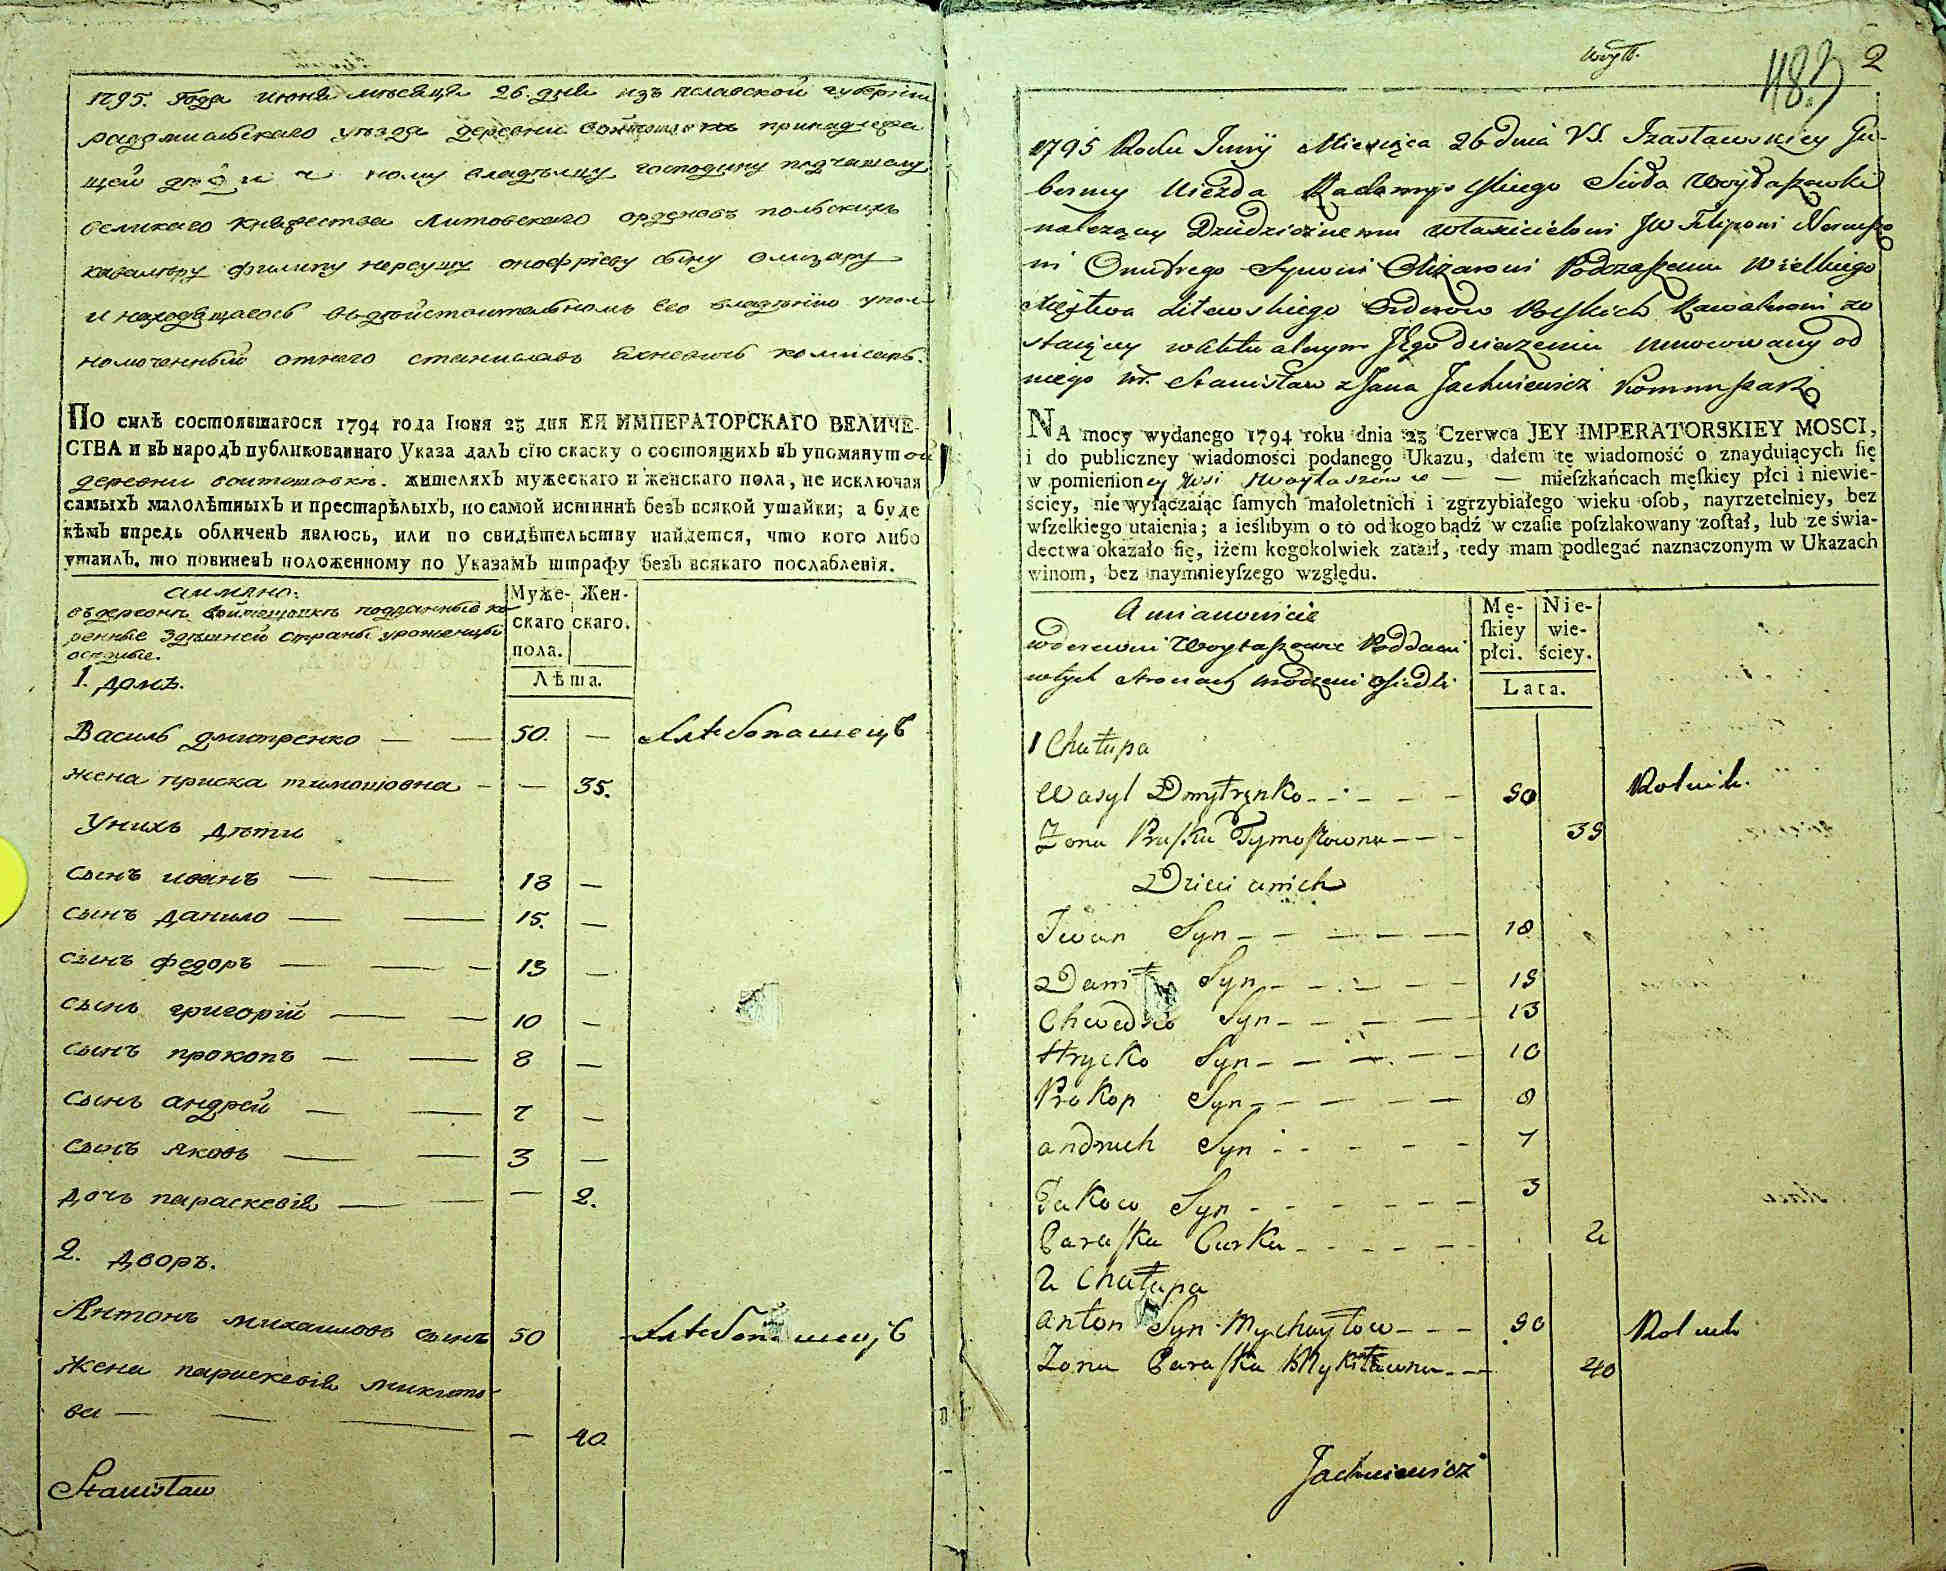 1795. года июня мѣсяца 26. дня изъ  губернiи
радомысльскаго уѣзда деревни войташовки принадлежа
щей дѣдичному владѣльцу господину подчашому
великаго княжества Литовскаго орденовъ польскихъ
кавалеру филипу нерeушу онофрiеву сыну олизару
и находящагось въдѣйствительномъ его владѣнiю упол
номоченный отнего станиславъ яхневичь комисаръ.
ПО силѣ состоявшагося 1794 года Iюня 23 дня ЕЯ ИМПЕРАТОРСКАГО ВЕЛИЧЕ-
СТВА и въ народъ публикованнаго Указа далъ сiю скаску о состоящихъ въ упомянутой
деревни войташовкѣ. жителяхъ мужескаго и женскаго пола, не исключая
самыхъ малолѣтныхъ и престарѣлыхъ, по самой истиннѣ безъ всякой утайки; а буде
кѣмъ впредь обличенъ явлюсь, или по свидѣтельству найдется, что кого либо
утаилъ, то повиненъ положенному по Указамъ штрафу безъ всякаго послабленiя.
аимяно:
въдеревнѣ войташовкѣ подданные ко
ренные здѣшней страны уроженцы
оседлые.
Муже- Жен-
скаго скаго.
пола.
Лѣта.
1. домъ.
Василь дмитренко — — 50. — хлѣбопашецъ
жена приска тимошовна — — 35.
Унихъ дѣти
сынъ иванъ — — 18 —
сынъ данило — — 15. —
сынъ федоръ — — — 13 —
сынъ григорiй — — 10 —
сынъ прокопъ — — 8 —
сынъ андрей — — 7 —
сынъ яковъ — — 3 —
дочь параскевiя — — — 2.
2. дворъ.
Антонъ михайловъ сынъ 50 хлѣбопашецъ
жена параскевiя микито-
ва — — — — 40.
Stanisław
Woyt.
483
2
1795 Roku Junij Miesiąca 26 dnia V.S. Izasławskiey Gu-
bernij Uiezda Radomyslskiego Sioła Woytaszowki
należący Dziedzicznemu właścicielowi JW Filipowi Nereuszo
wi Onufrego Synowi Olizarowi Podczaszemu Wielkiego
Xięstwa Litewskiego Orderow Polskich Kawalerowi zo
staiący waktualnym Jego dzierzeniu umocowany od
niego W. Stanisław z Jana Jachniewicz Kommissarz
NA mocy wydanego 1794 roku dnia 23 Czerwca JEY IMPERATORSKIEY MOSCI,
i do publiczney wiadomości podanego Ukazu, dałem tę wiadomość o znayduiących ſię
w pomienioney Wsi Woytaszowce — — mieſzkańcach męſkiey płci i niewie-
ściey, niewyłączaiąc ſamych małoletnich i zgrzybiałego wieku oſob, nayrzetelniey, bez
wſzelkiego utaienia; a ieślibym o to od kogo bądź w czaſie poſzlakowany zoſtał, lub ze świa-
dectwa okazało ſię, iżem kogokolwiek zataił, tedy mam podlegać naznaczonym w Ukazach
winom, bez naymnieyſzego względu.
Amianowicie
wderewni Woytaszowce Poddani
wtych stronach urodzeni osiedli
Mę- Nie-
ſkiey wie-
płci. ściey.
Lata.
1 Chałupa
Wasyl Dmytrenko — — — 50 Rolnik.
Zona Praska Tymoszowna — — — 35
Dzieci unich
Iwan Syn — — — — 18
Daniło Syn — — — — 15
Chwedko Syn — — — — 13
Hrycko Syn — — — — 10
Prokop Syn — — — — 8
andruch Syn — — — — 7
Jakow Syn — — — — 3
Paraska Curka — — — — 2
2 Chałupa
anton Syn Mychayłow — — — 50 Rolnik
Zona Paraska Mykitowna — — — 40
Jachniewicz